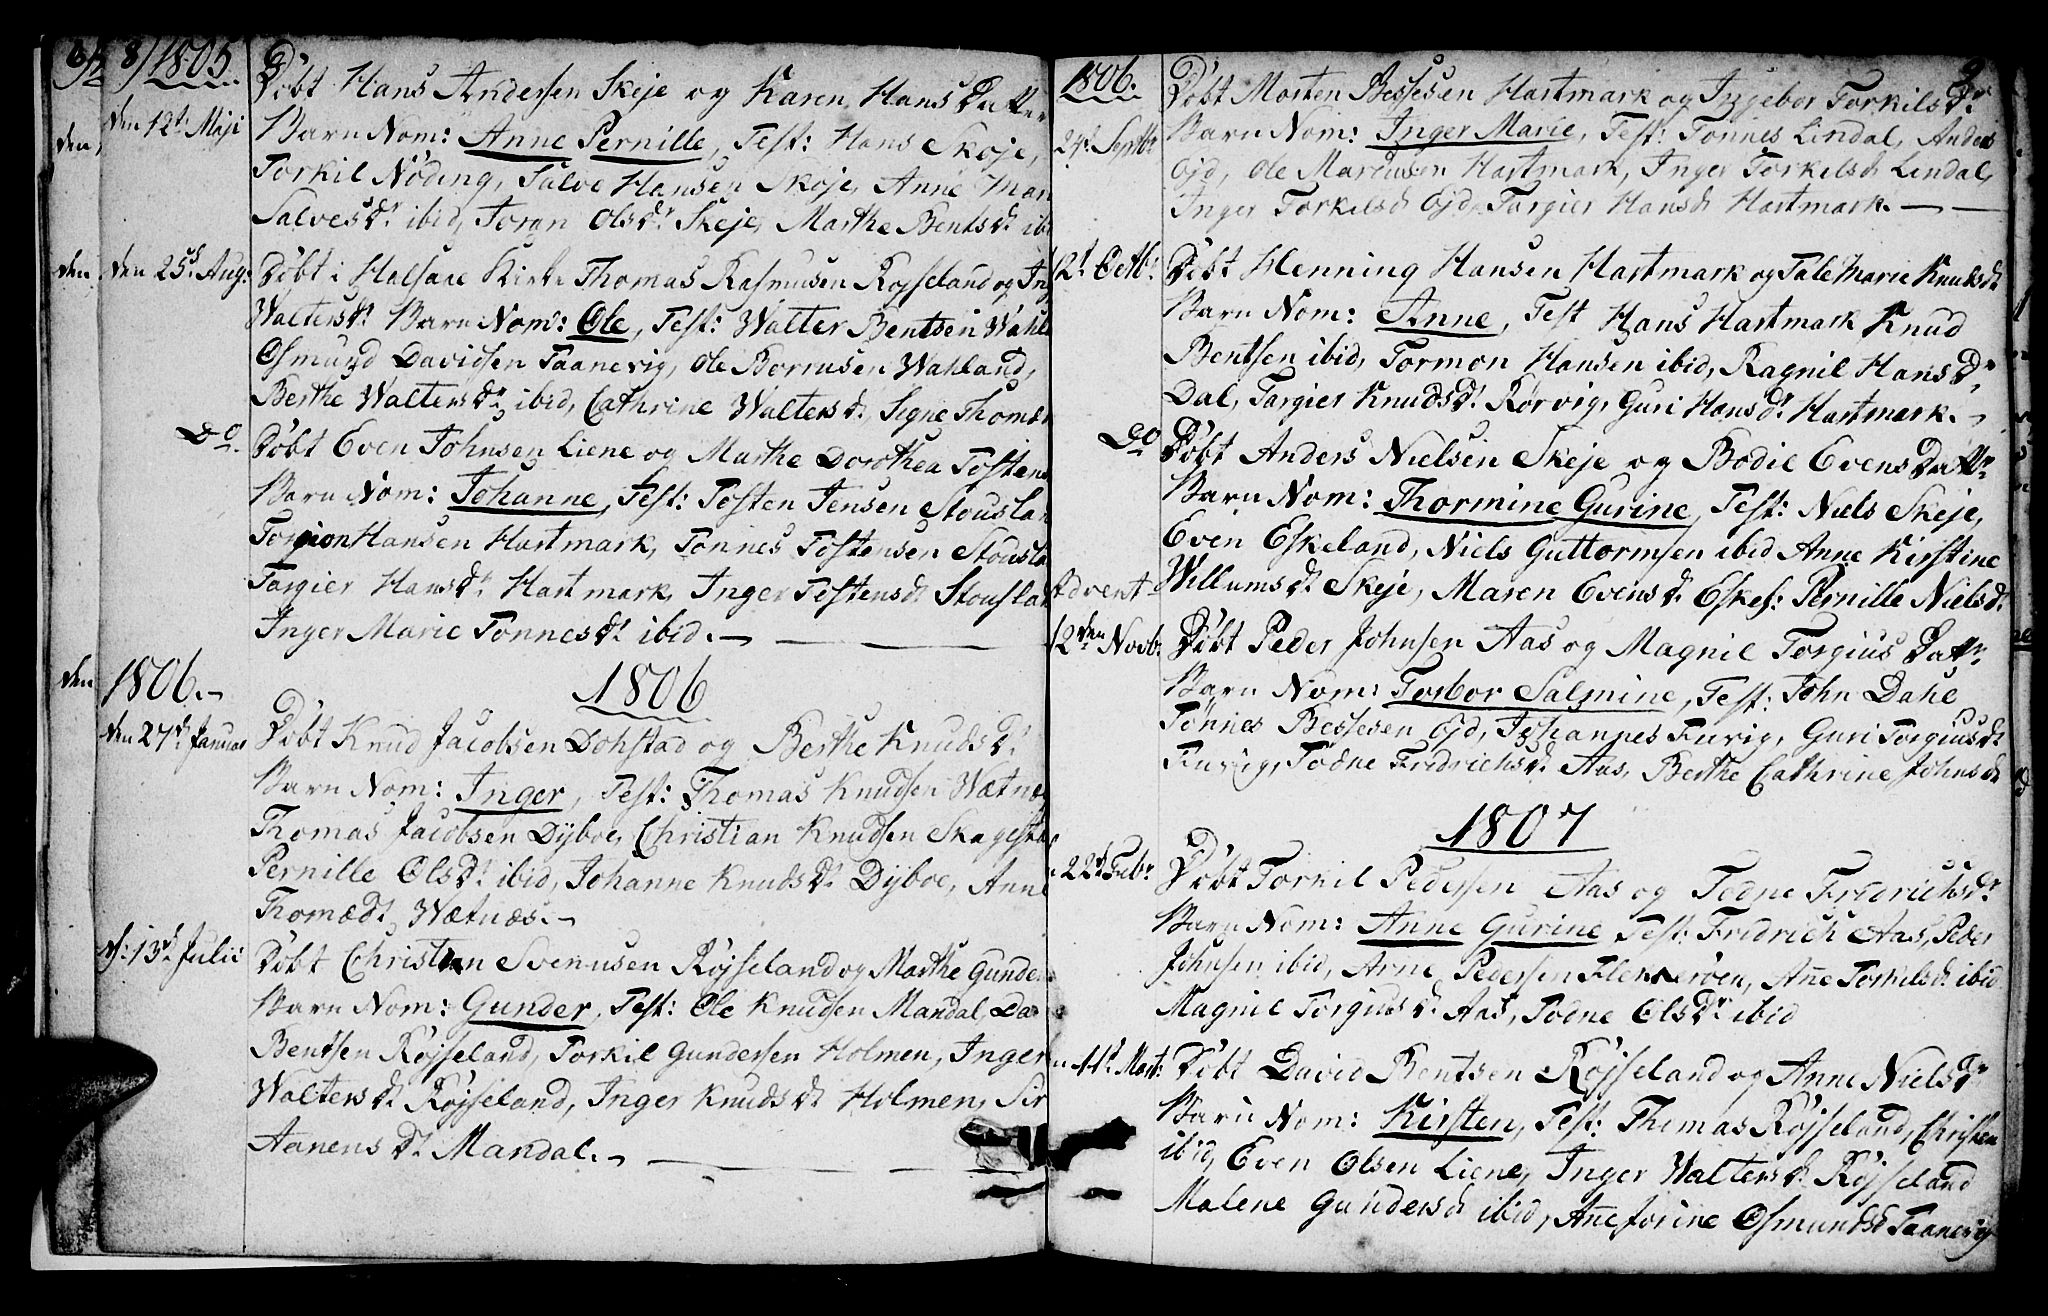 8) 1805.
den 12t Maji
Døbt Hans Andersen Skeje og Karen Hans Datter
Barn Nom: Anne Pernille, Test: Hans Skøje,
Torkil Nøding, Salve Hansen Skøje, Anne Mar
Salvesdr ibid, Toran Olsdr Skeje, Marthe Bentsdr ibi
den 25d Aug:
Døbt i Halsaae Kirke Thomas Rasmusen Røjseland og Ing
Waltersdr Barn Nom: Ole, Test: Walter Bentsen Wahl
Osmund Davidsen Taanevig, Ole Wahland,
Berthe Waltersdr ibid, Cathrine Waltersdr, Signe Thomæ
Do
Døbt Even Johnsen Liene og Marthe Dorothea Tostens
Barn Nom: Johanne, Test: Tosten Jensen Stousla
Hansen Hartmark, Tønnes Tostensen Stousla
Targier Hansdr Hartmark, Inger Tostensdr Stousla
Inger Marie Tonnesdr ibid.
1806.
1806
den 27d Januar
Døbt Knud Jacobsen Dohstad og Berthe Knudsdr
Barn Nom: Inger, Test: Thomas Knudsen Wætnæ
Thomas Jacobsen Dijboe, Christian Knudsen Skagesta
Pernille Olsdr ibid, Johanne Knudsdr Dijboe, Anne
Thomædr Wætnæs.
d: 13d Julii
Døbt Christen Svenusen Røjseland og Marthe Gunder
Barn Nom: Gunder, Test: Ole Knudsen Mandal, Da
Bentsen Røjseland, Torkil Gundersen Holmen, Inger
Waltersdr Røjseland, Inger Knudsdr Holmen, Sir
Aanensdr Mandal.
9
1806.
24d Septbr
Døbt Morten Bessesen Hartmark og Ingebor Torkilsdr
Barn Nom: Inger Marie, Test: Tonnes Lindal, Anders
Ojd, Ole Marcusen Hartmark, Inger Torkelsd Lindal,
Inger Torkelsd Ojd, Targier Hansd Hartmark.
12t Octbr
Døbt Henning Hansen Hartmark og Tale Marie Knudsdr
Barn Nom: Anne, Test Hans Hartmark Knud
Bentsen ibid, Tormon Hansen ibid, Ragnil Hansdr
Dal, Targier Knudsdr Rørvig, Guri Hansdr Hartmark.
Do
Døbt Anders Nielsen Skeje og Bodil Evens Dattr
Barn Nom: Thormine Gurine, Test: Niels Skeje,
Even Eskeland, Niels Guttormsen ibid Anne Kirstine
Willumsdr Skeje, Maren Evensdr Eskel: Pernille Nielsdr
Advent
12den Novb:
Døbt Peder Johnsen Aas og Magnil Torgius Dattr
Barn Nom: Torbor Salmine, Test: John Dahl
Tønnes Bessesen Ojd, Johannes Furvig, Guri Torgiusdr
Furvig, Tødne Fridrichsdr Aas, Berthe Cathrine Johnsdr
1807
22d Febr
Døbt Torkil Pedersen Aas og Todne Fridrichsdr
Barn Nom: Anne Gurine Test: Fridrich Aas, Peder
Johnsen ibid, Arne Pedersen Flekkerøen, Añe Torkilsdr ibid
Magnil Torgiusdr Aas, Todne Olsdr ibid
11t Mart:
Døbt David Bentsen Røjseland og Anne Nielsdr
Barn Nom: Kirsten, Test: Thomas Røjseland, Christen
ibid, Even Olsen Liene, Inger Waltersdr Røjseland
Malene Gundersd ibid, Añe Jorine Osmundsd Taanevig